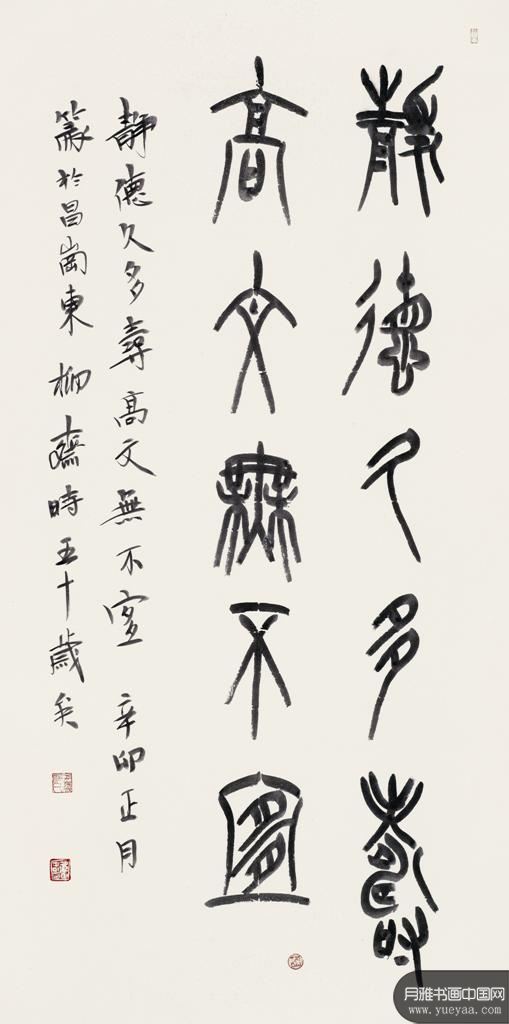 靜德久多壽
高文無不宜
靜德久多壽高文無不宜 辛卯正月
篆於昌崗東柳齋時五十歲矣
月雅书画中国网
www.yueyaa.com